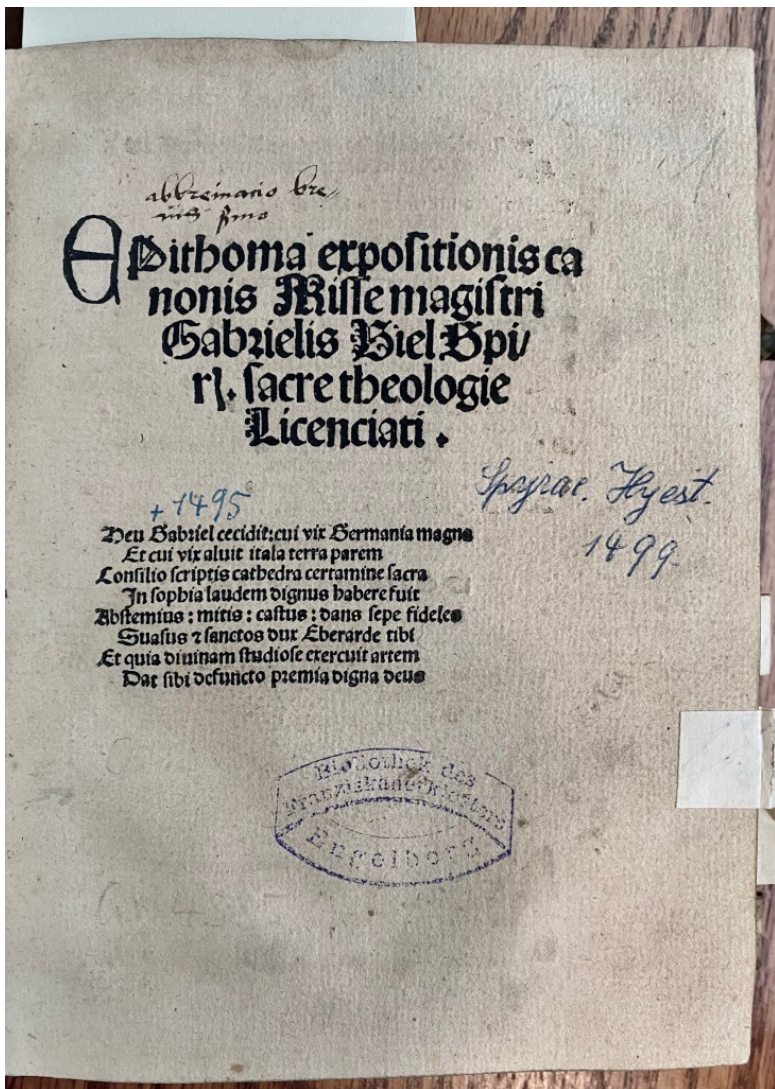 abbreviacio bre„
EPithoma expositionis ca
nonis Misse magistri
Gabrielis Biel Spi/
rꝭ. sacre theologie
Licenciati.
Spyrae. Hyest.
1499.
+1495
Heu Gabriel cecidit: cui vix Germania magna
Et cui vix aluit itala terra parem
Consilio scriptis cathedra certamine sacra
In sophia laudem dignus habere fuit
Abstemius: mitis: castus: dans sepe fideles
Suasus ⁊ sanctos dux Eberarde tibi
Et quia diuinam studiose exercuit artem
Dat sibi defuncto premia digna deus
Bibliothek des
Franziskanerklosters
Engelberg